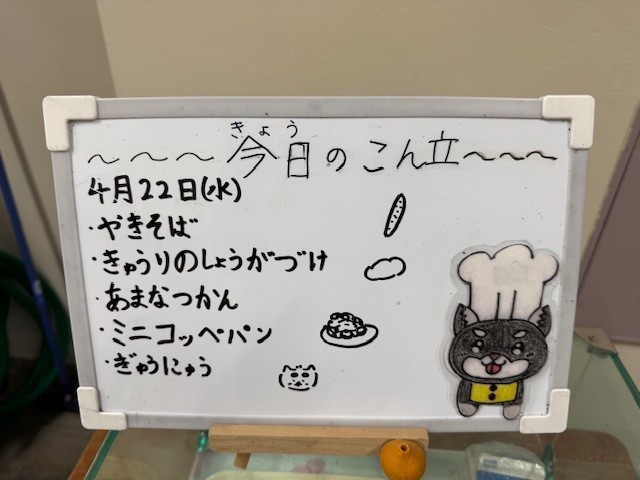 きょう
~~~今日のこん立~~~
4月22日(水)
・やきそば
・きゅうりのしょうがづけ
・あまなつかん
・ミニコッペパン
・ぎゅうにゅう